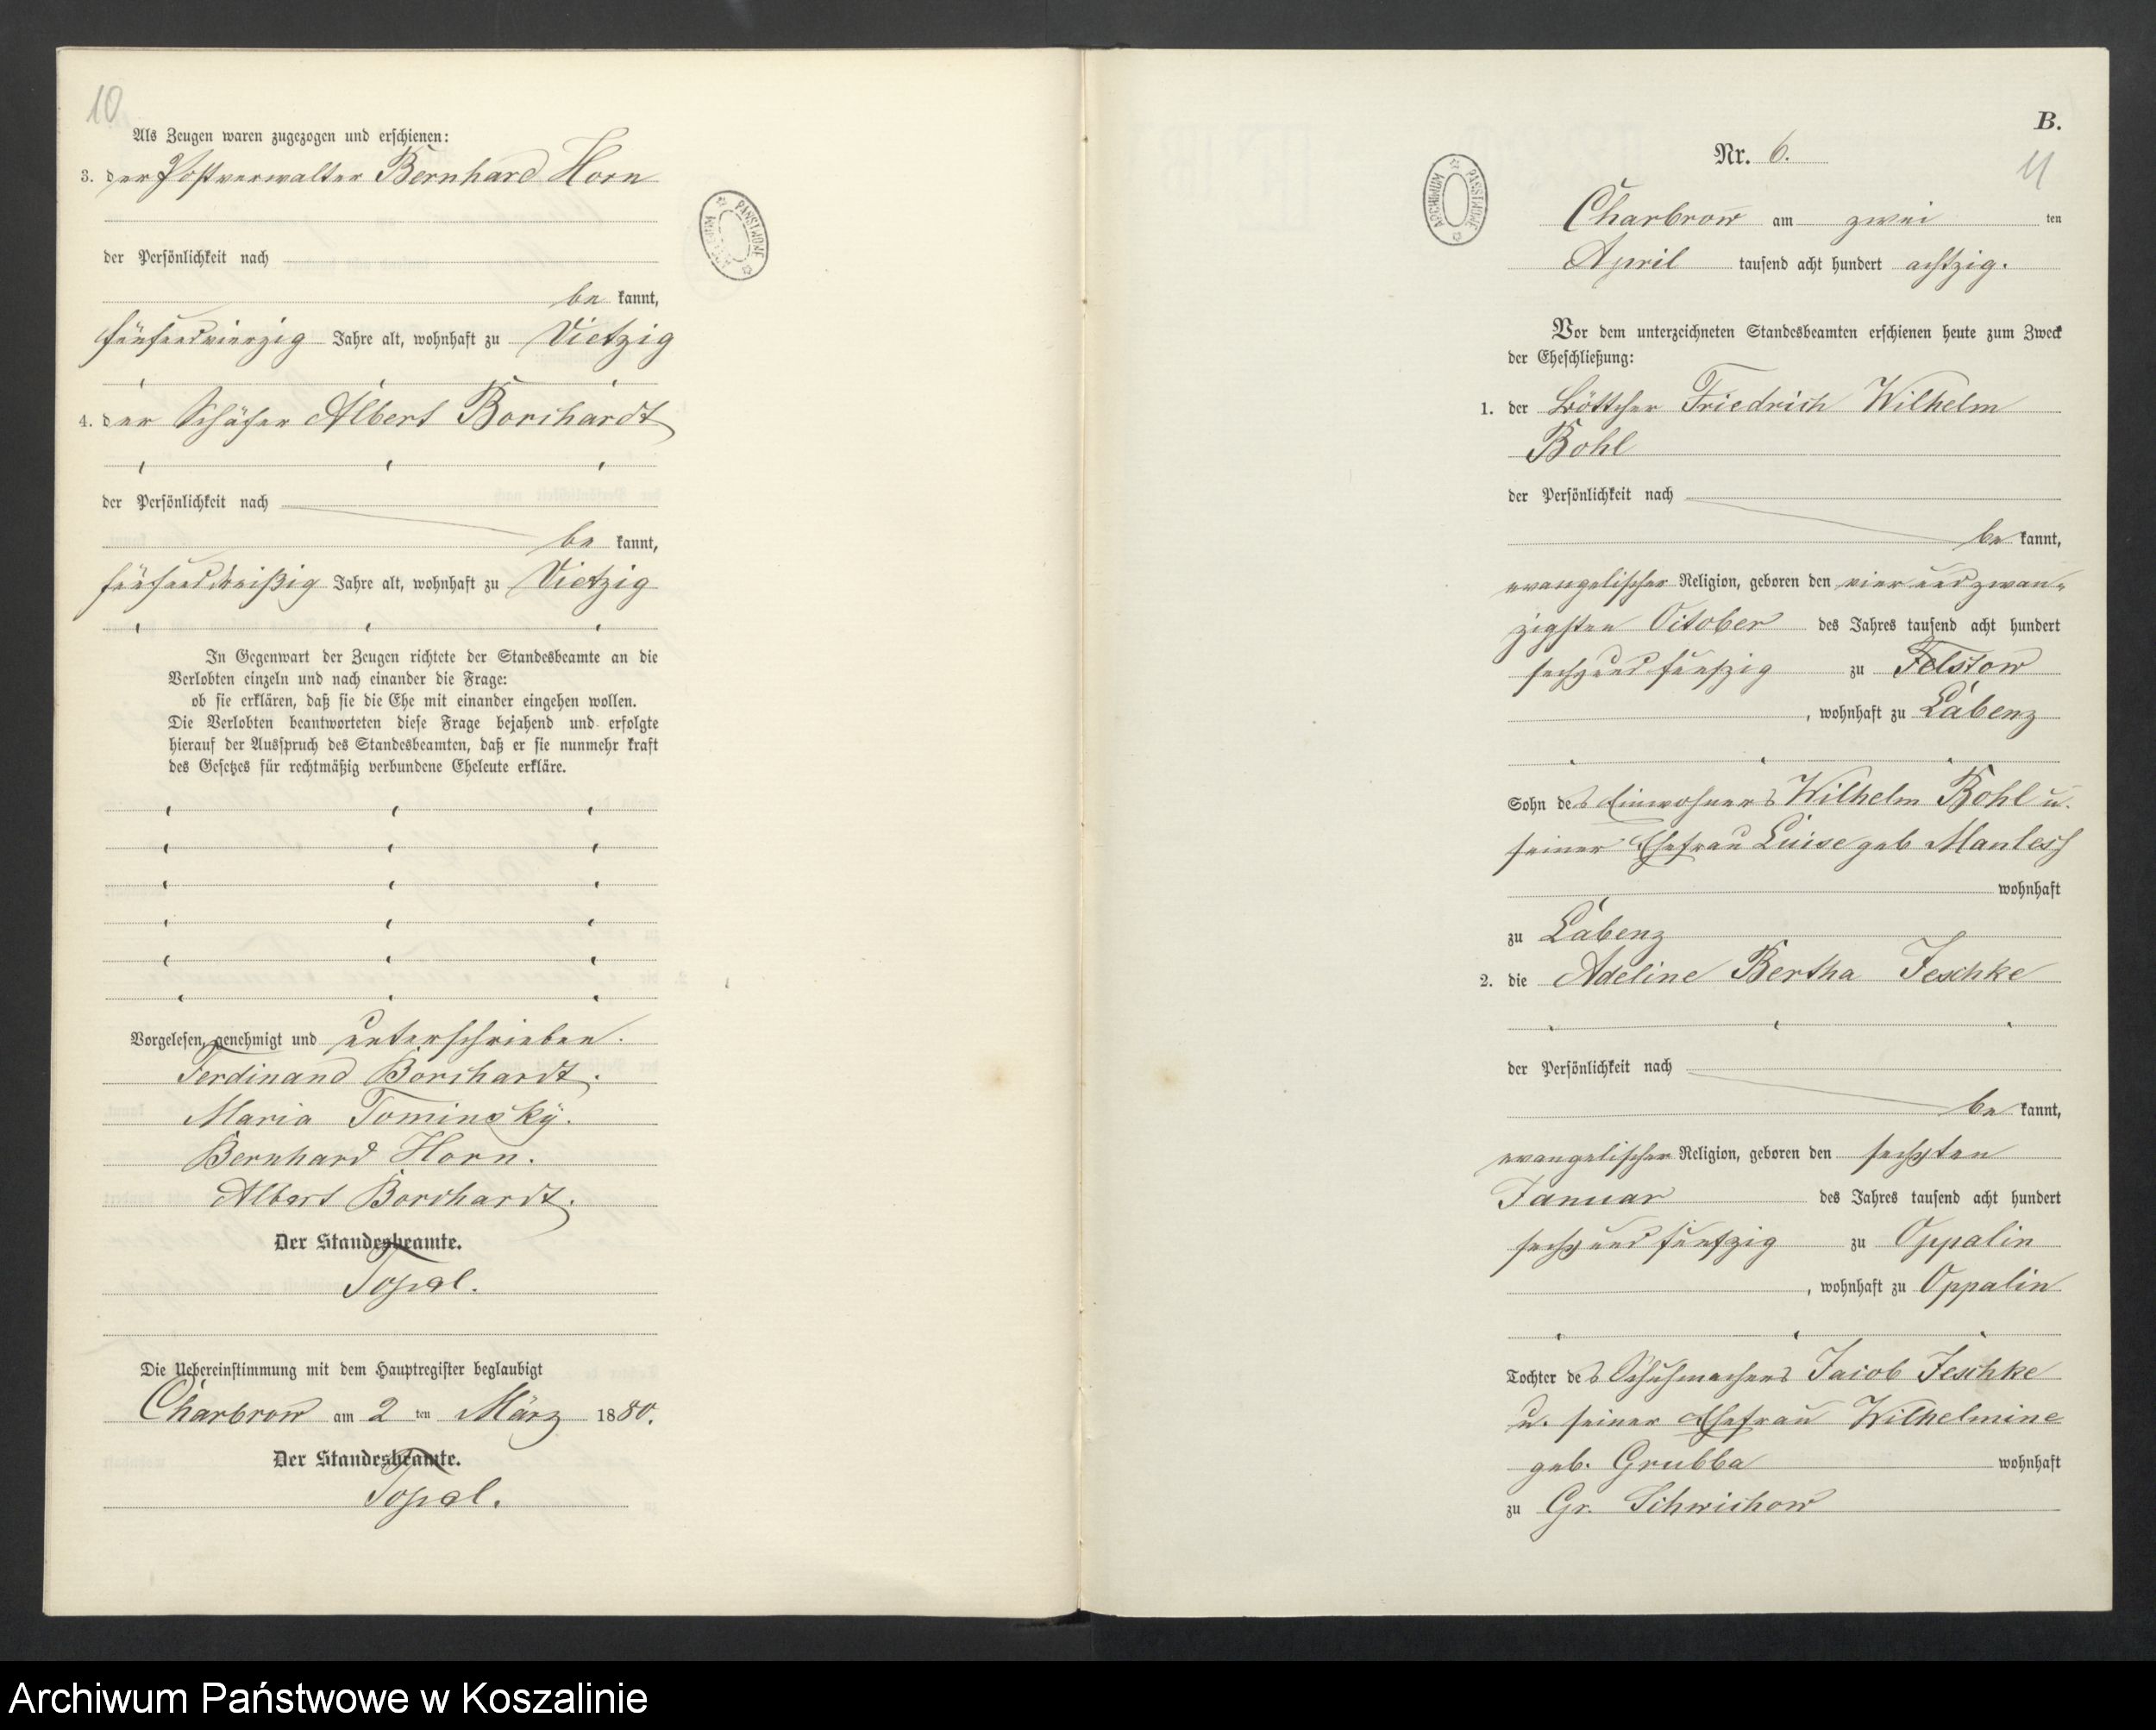 10
Als Zeugen waren zugezogen und erschienen:
3. der Postverwalter Bernhard Horn
der Persönlichkeit nach
be kannt,
fünfundvierzig Jahre alt, wohnhaft zu Vietzig
4. der Schäfer Albert Borchardt
der Persönlichkeit nach
be kannt,
fünfunddreißig Jahre alt, wohnhaft zu Vietzig
In Gegenwart der Zeugen richtete der Standesbeamte an die
Verlobten einzeln und nach einander die Frage:
ob sie erklären, daß sie die Ehe mit einander eingehen wollen.
Die Verlobten beantworteten diese Frage bejahend und erfolgte
hierauf der Ausspruch des Standesbeamten, daß er sie nunmehr kraft
des Gesetzes für rechtmäßig verbundene Eheleute erkläre.
Vorgelesen, genehmigt und unterschrieben.
Ferdinand Borchardt.
Maria Tominsky.
Bernhard Horn.
Albert Borchardt.
Der Standesbeamte.
Topel.
Die Uebereinstimmung mit dem Hauptregister beglaubigt
Charbrow am 2 ten März 1880.
Der Standesbeamte.
Topel.
ARCHIWUM PAŃSTWOWE
B.
Nr. 6.
11
ARCHIWUM PAŃSTWOWE
Charbrow am zwei ten
April tausend acht hundert achtzig.
Vor dem unterzeichneten Standesbeamten erschienen heute zum Zweck
der Eheschließung:
1. der Böttcher Friedrich Wilhelm
Bohl
der Persönlichkeit nach
be kannt,
evangelischer Religion, geboren den vier und zwan-
zigsten October des Jahres tausend acht hundert
sechs und fünfzig zu Felstow
, wohnhaft zu Labenz
Sohn des Einwohners Wilhelm Bohl u.
seiner Ehefrau Luise geb
wohnhaft
zu Labenz
2. die Adeline Bertha Jeschke
der Persönlichkeit nach
be kannt,
evangelischer Religion, geboren den sechsten
Januar des Jahres tausend acht hundert
sechs und fünfzig zu Oppalin
, wohnhaft zu Oppalin
Tochter des Schuhmachers Jacob Jeschke
u. seiner Ehefrau Wilhelmine
geb. Grubba wohnhaft
zu Gr. Schwichow
Archiwum Państwowe w Koszalinie